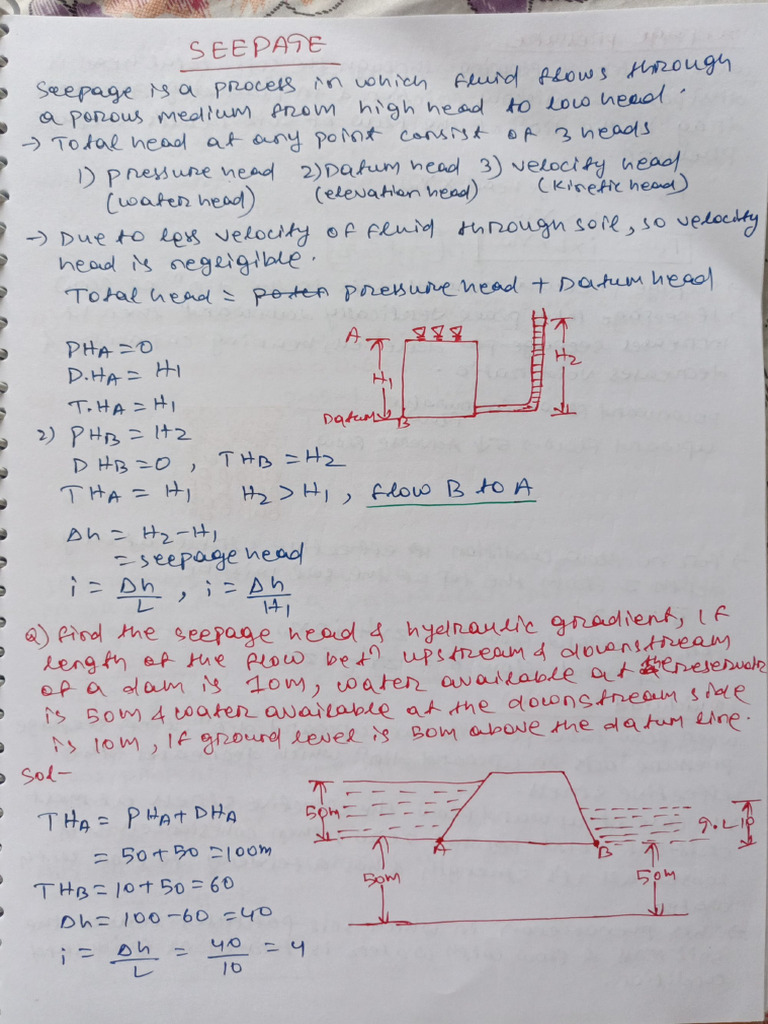 SEEPAGE
Seepage is a process in which fluid flows through
a porous medium from high head to low head.
→ Total head at any point consist of 3 heads
1) pressure head 2) Datum head 3) velocity head
(water head) (elevation head) (Kinetic head)
→ Due to less velocity of fluid through soil, so velocity
head is negligible.
Total head = pressure head + Datum head
PHA = 0
D.HA = H1
T.HA = H1
2) PHB = H2
DHB = 0 , THB = H2
THA = H1 H2 > H1 , flow B to A
Δh = H2 - H1
= seepage head
i = Δh/L , i = Δh/H1
A
H1
H2
Datum
B
Q) find the seepage head & hydraulic gradient, if
length of the flow betn upstream & downstream
of a dam is 10m, water available at the reservoir
is 50m & water available at the downstream side
is 10m, if ground level is 50m above the datum line.
Sol-
THA = PHA + DHA
= 50 + 50 = 100m
THB = 10 + 50 = 60
Δh = 100 - 60 = 40
i = Δh/L = 40/10 = 4
50m
A
B
g.L 10
50m
50m